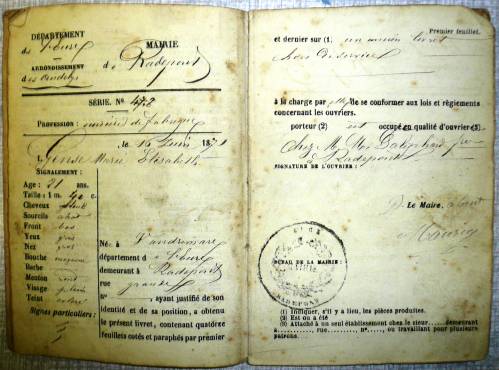 DÉPARTEMENT
de l'Eure
ARRONDISSEMENT
des Andelys
MAIRIE
de Radepont
SÉRIE. No 472
PROFESSION: ouvrière de fabrique
le 14 Juin 187
Marie Elisabeth
SIGNALEMENT:
Age: 21 ans.
Taille: 1 m. c.
Cheveux
Sourcils
Front bas
Yeux gris
Nez gros
Bouche moyenne
Barbe
Menton rond
Visage plein
Teint coloré
Signes particuliers:
Né à Vandrimare
département de l'Eure
demeurant à Radepont
rue grande
No , ayant justifié de son
identité et de sa position, a obtenu
le présent livret, contenant quatorze
feuillets cotés et paraphés par premier
Premier feuillet.
et dernier sur (1) un ancien livret
hors de service
à la charge par elle de se conformer aux lois et règlements
concernant les ouvriers.
porteur (2) est occupé en qualité d'ouvrier (3)
Chez M.
à Radepont
SIGNATURE DE L'OUVRIER:
Le Maire,
SCEAU DE LA MAIRIE:
MAIRIE
RADEPONT
(1) Indiquer, s'il y a lieu, les pièces produites.
(2) Est ou a été
(3) Attaché à un seul établissement chez le sieur ..... demeurant
à ........, rue ......, no ...., ou travaillant pour plusieurs
patrons.